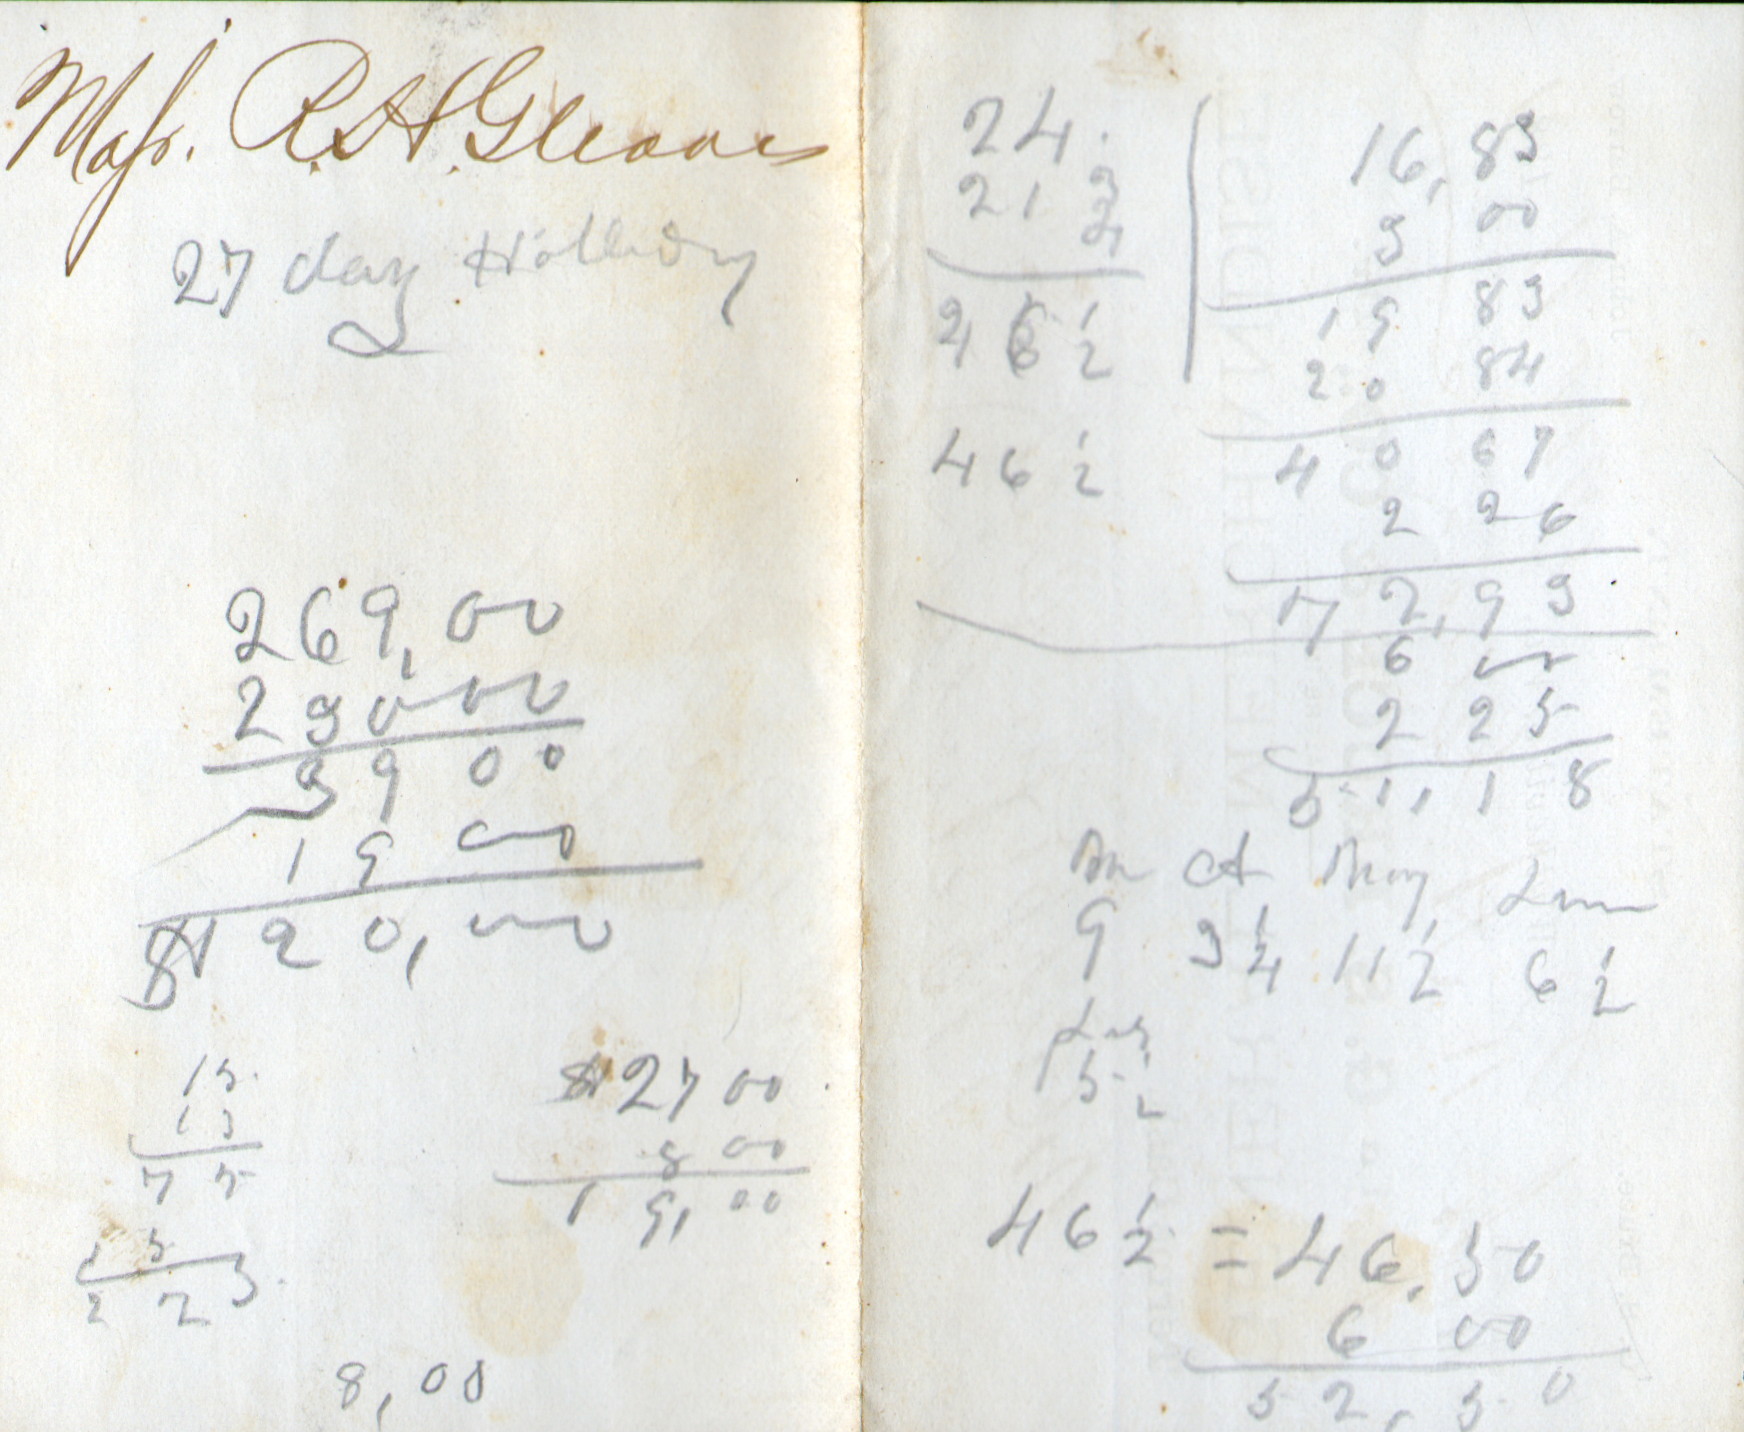 Majr. R. A. Gleaves
27 day Holliday
269,00
23000
39 00
19 00
$120,00
15
15
75
15
225
$27 00
8 00
19,00
8,00
24.
21 2/4
46 1/2
46 1/2
16,83
3 00
19 83
20 84
40 67
2 26
42,93
6 00
2 25
51,18
May
9 3 1/4 11 1/2 6 1/2
5 1/2
46 1/2 = 46.50
6 00
52,50